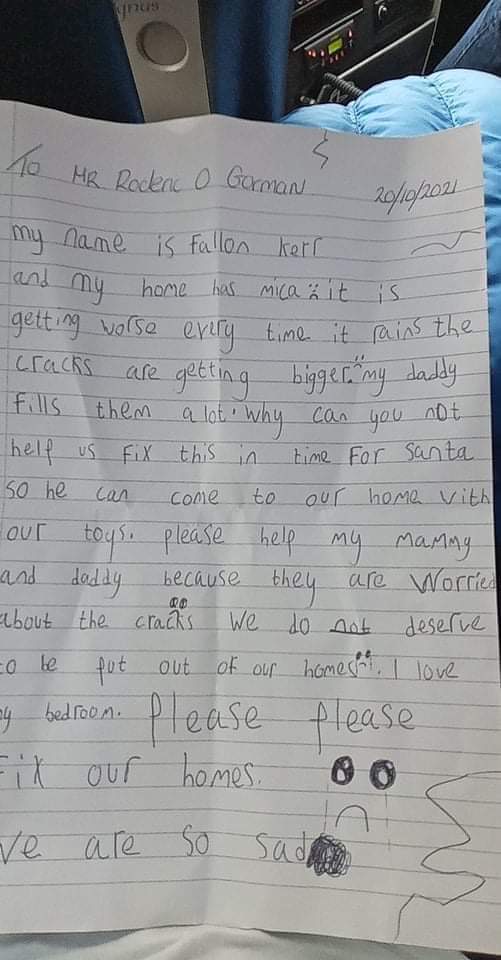 gnus
To MR Roderic O Gorman
20/10/2021
my name is Fallon Kerr
and my home has mica it is
getting worse every time it rains the
cracks are getting bigger. my daddy
fills them a lot. Why can you not
help us fix this in time for Santa
so he can come to our home with
our toys. please help my mammy
and daddy because they are worried
about the cracks We do not deserve
to be put out of our homes. I love
my bedroom. Please please
fix our homes.
we are so sad